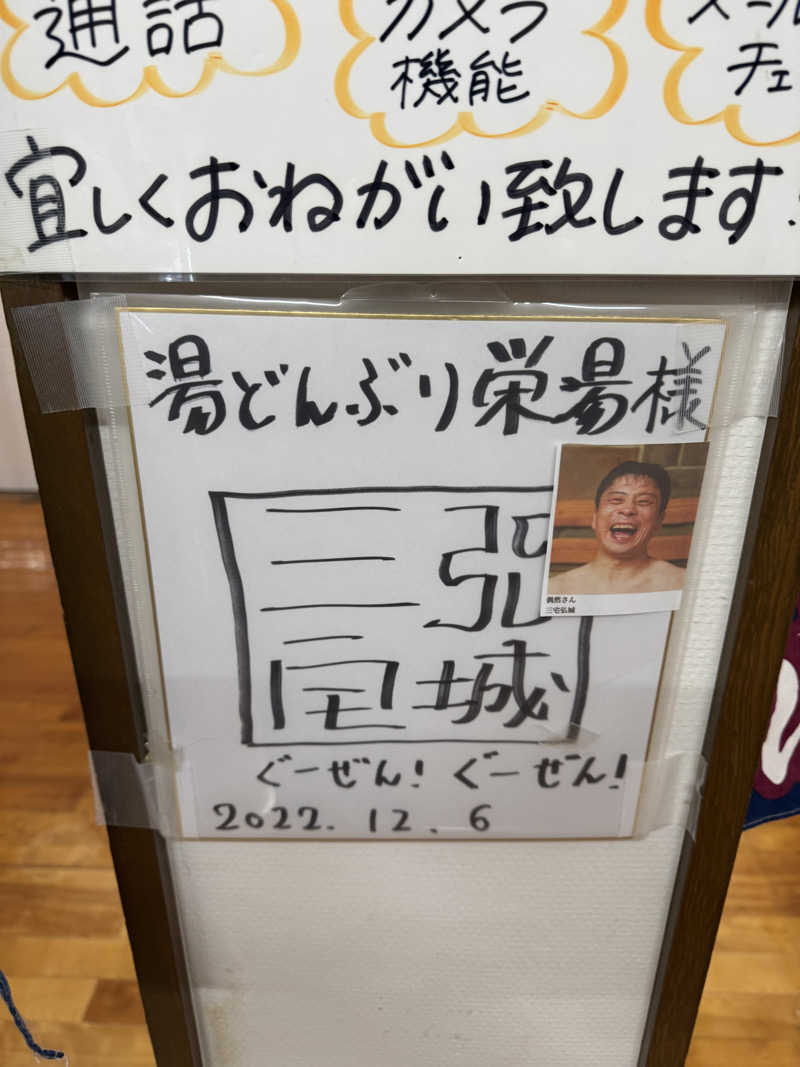 通話
カメラ
機能
メール
チェ
宜しくおねがい致します!
湯どんぶり栄湯様
三宅
弘城
偶然さん
三宅弘城
ぐーぜん!ぐーぜん!
2022.12.6